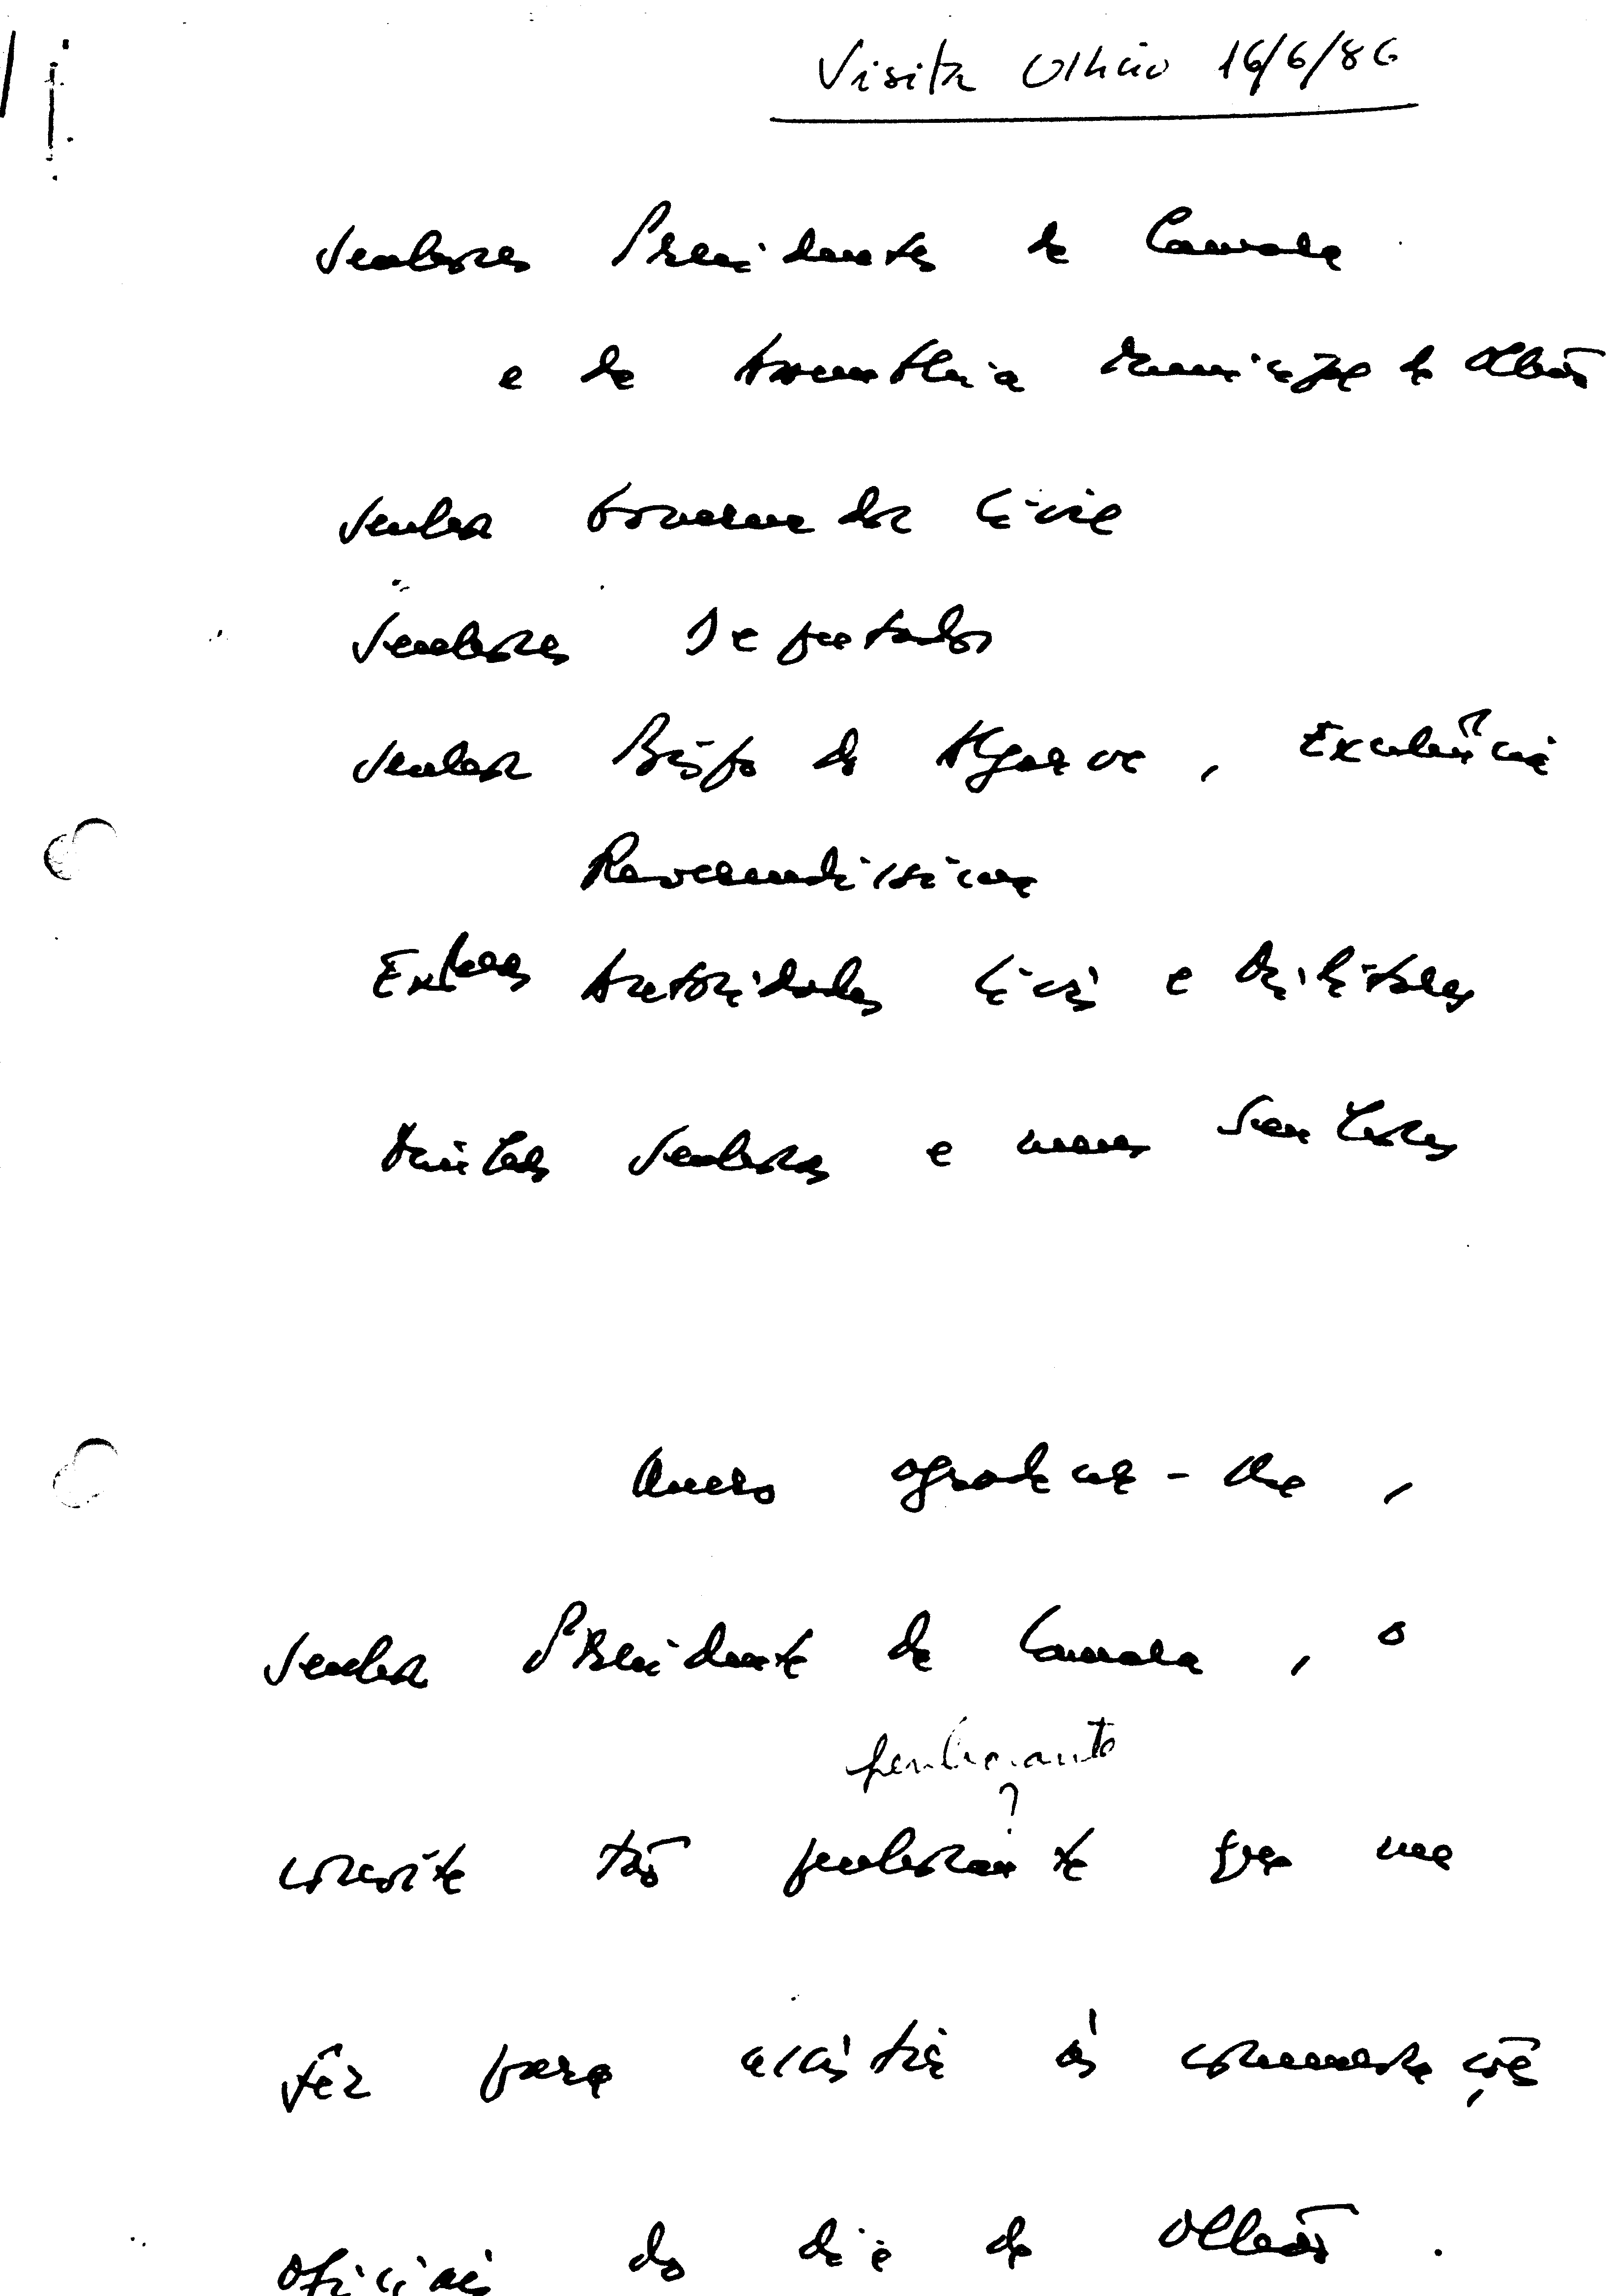 Visita Olhão 16/6/86
Senhores Presidentes da Camara
e da Assembleia Municipal de Olhão
Senhor Governador Civil
Senhores Deputados
Senhor Bispo do Algarve, Excelência
Reverendíssima
Exlmas Autoridades Civis e Militares
Minhas Senhoras e meus Senhores
Quero agradecer-lhe,
Senhor Presidente da Camara, o
penhorante
?
convite tão penhorante que me
fêz para assistir às comemorações
oficiais do dia de Olhão.